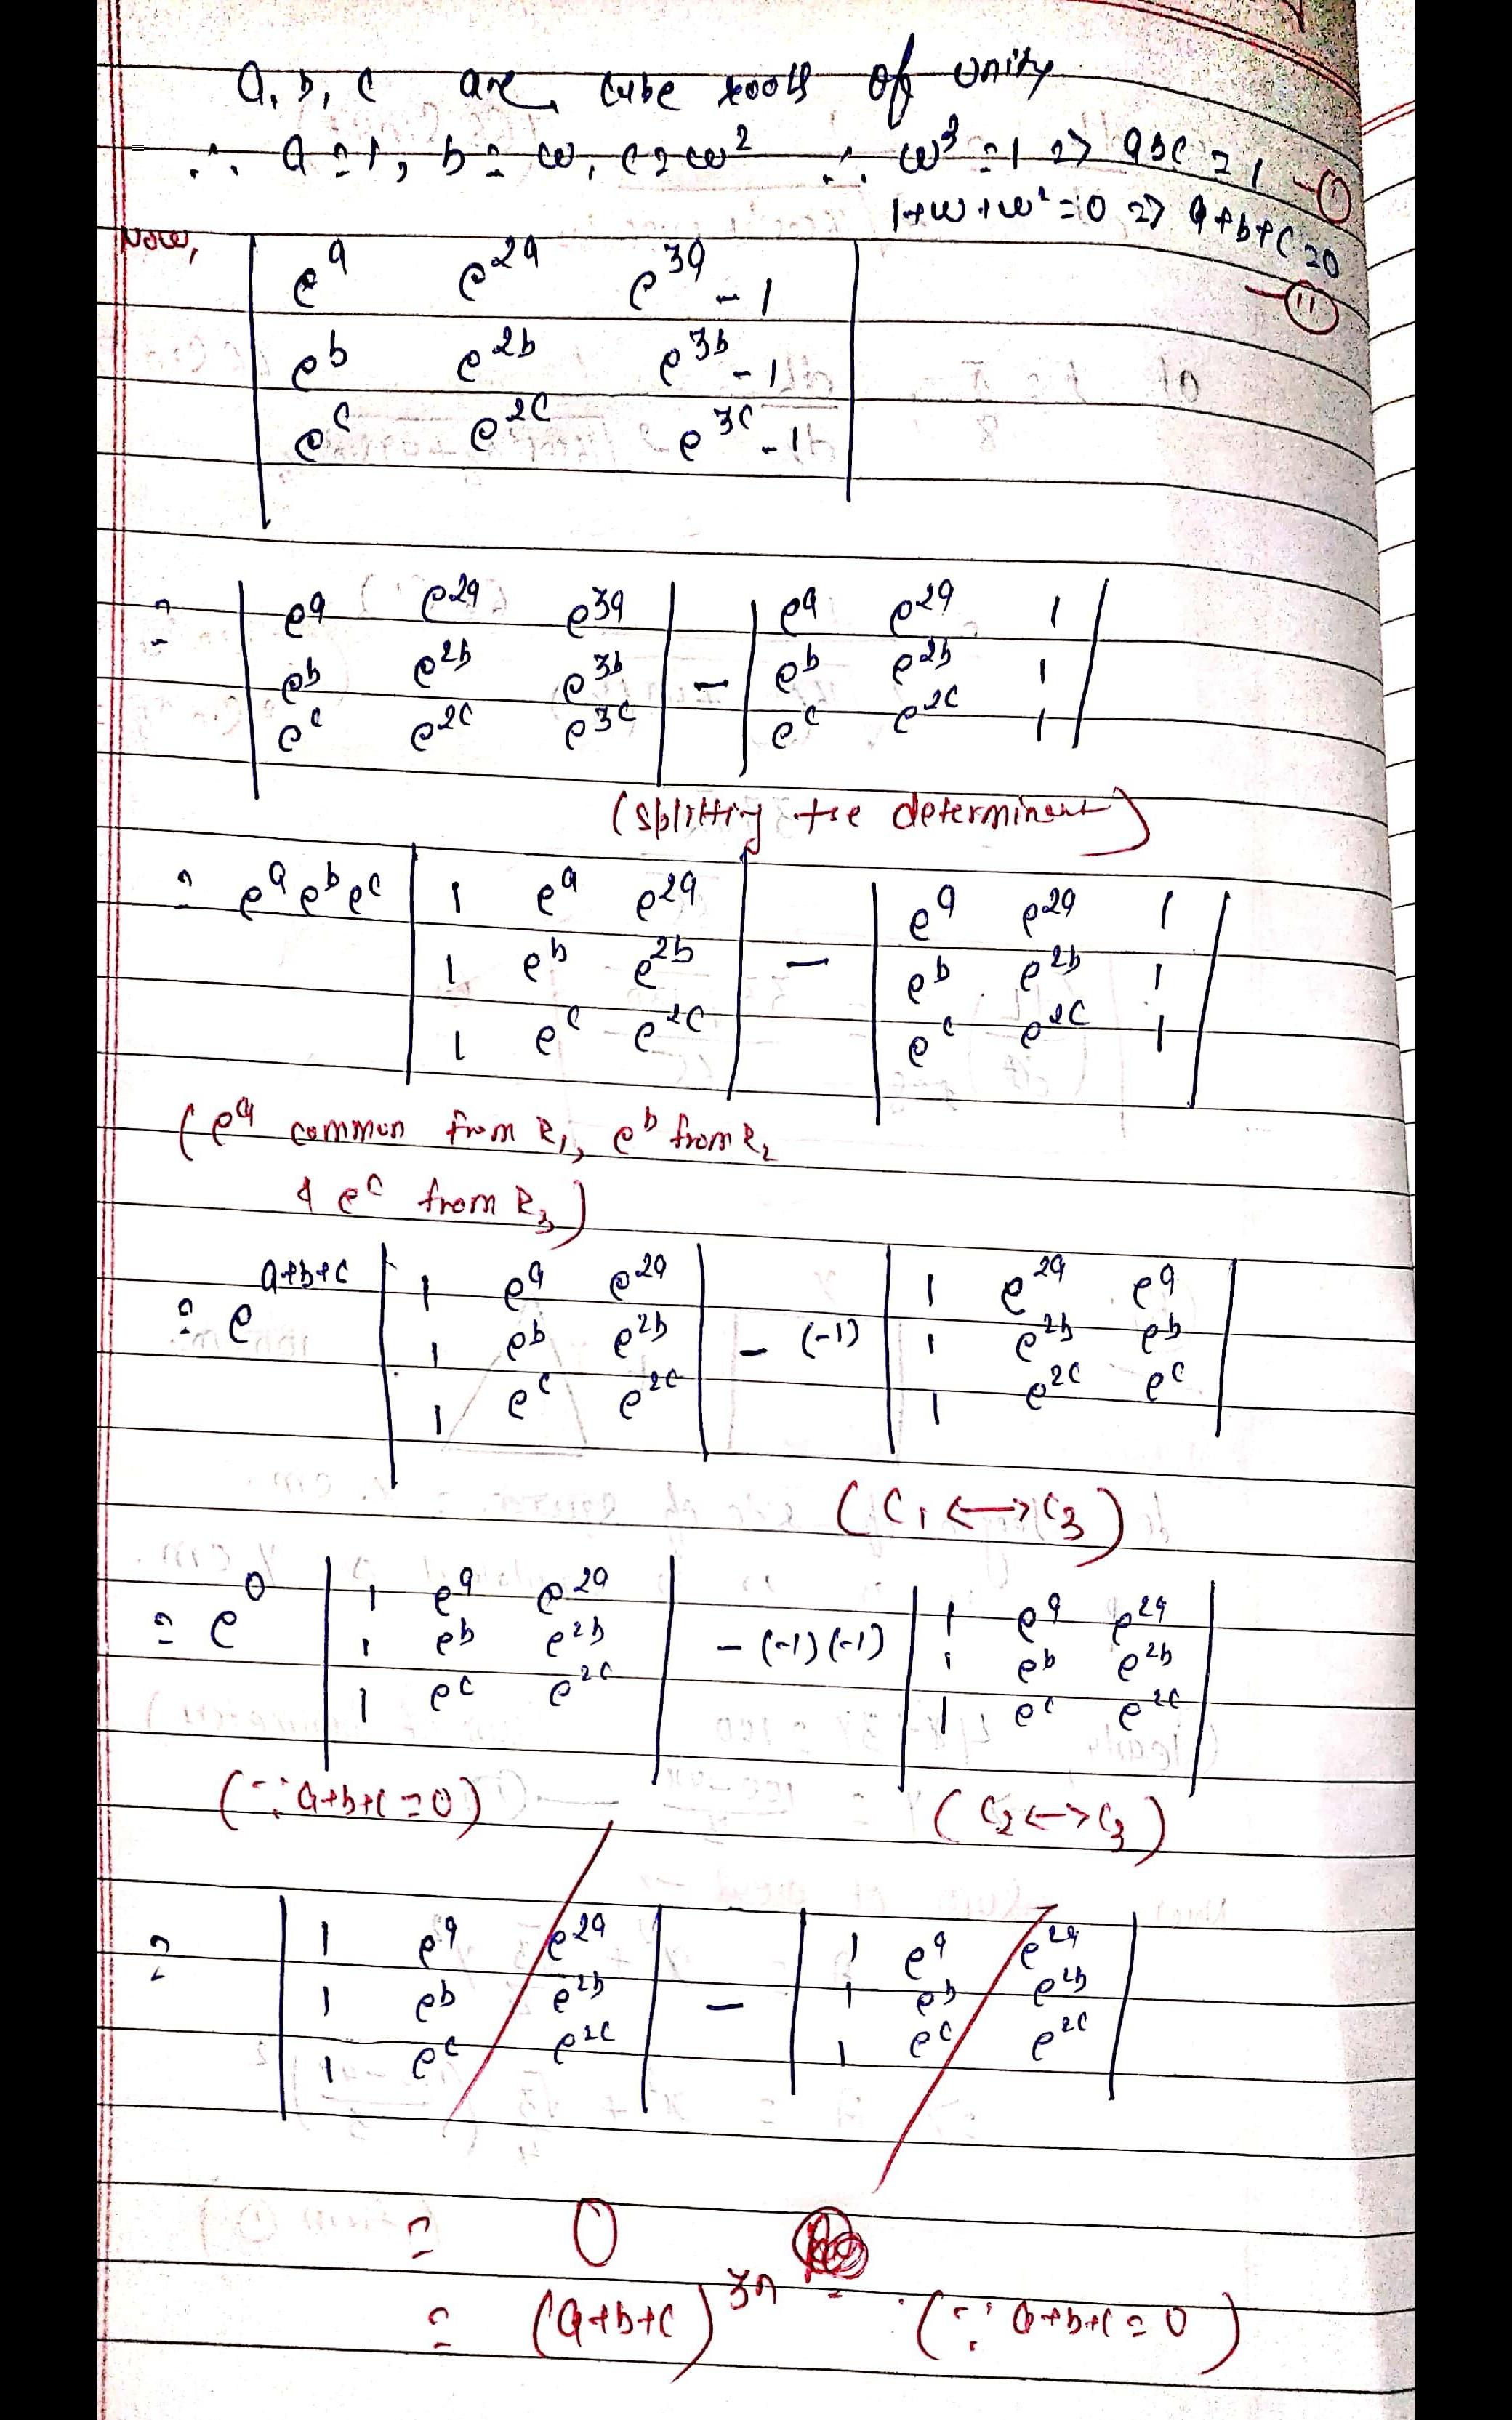 a, b, c are cube roots of unity
∴ a = 1, b = ω, c = ω² ∴ ω³ = 1 => abc = 1 —(i)
1+ω+ω² = 0 => a+b+c = 0 —(ii)
Now,
| e^a e^2a e^3a - 1 |
| e^b e^2b e^3b - 1 |
| e^c e^2c e^3c - 1 |
= | e^a e^2a e^3a | - | e^a e^2a 1 |
| e^b e^2b e^3b | | e^b e^2b 1 |
| e^c e^2c e^3c | | e^c e^2c 1 |
(splitting the determinant)
= e^a e^b e^c | 1 e^a e^2a | - | e^a e^2a 1 |
| 1 e^b e^2b | | e^b e^2b 1 |
| 1 e^c e^2c | | e^c e^2c 1 |
(e^a common from R₁, e^b from R₂
& e^c from R₃)
= e^a+b+c | 1 e^a e^2a | - (-1) | 1 e^2a e^a |
| 1 e^b e^2b | | 1 e^2b e^b |
| 1 e^c e^2c | | 1 e^2c e^c |
(C₁ <-> C₃)
= e^0 | 1 e^a e^2a | - (-1) (-1) | 1 e^a e^2a |
| 1 e^b e^2b | | 1 e^b e^2b |
| 1 e^c e^2c | | 1 e^c e^2c |
(∵ a+b+c = 0) (C₂ <-> C₃)
= | 1 e^a e^2a | - | 1 e^a e^2a |
| 1 e^b e^2b | | 1 e^b e^2b |
| 1 e^c e^2c | | 1 e^c e^2c |
= 0
= (a+b+c)^3n (∵ a+b+c = 0)